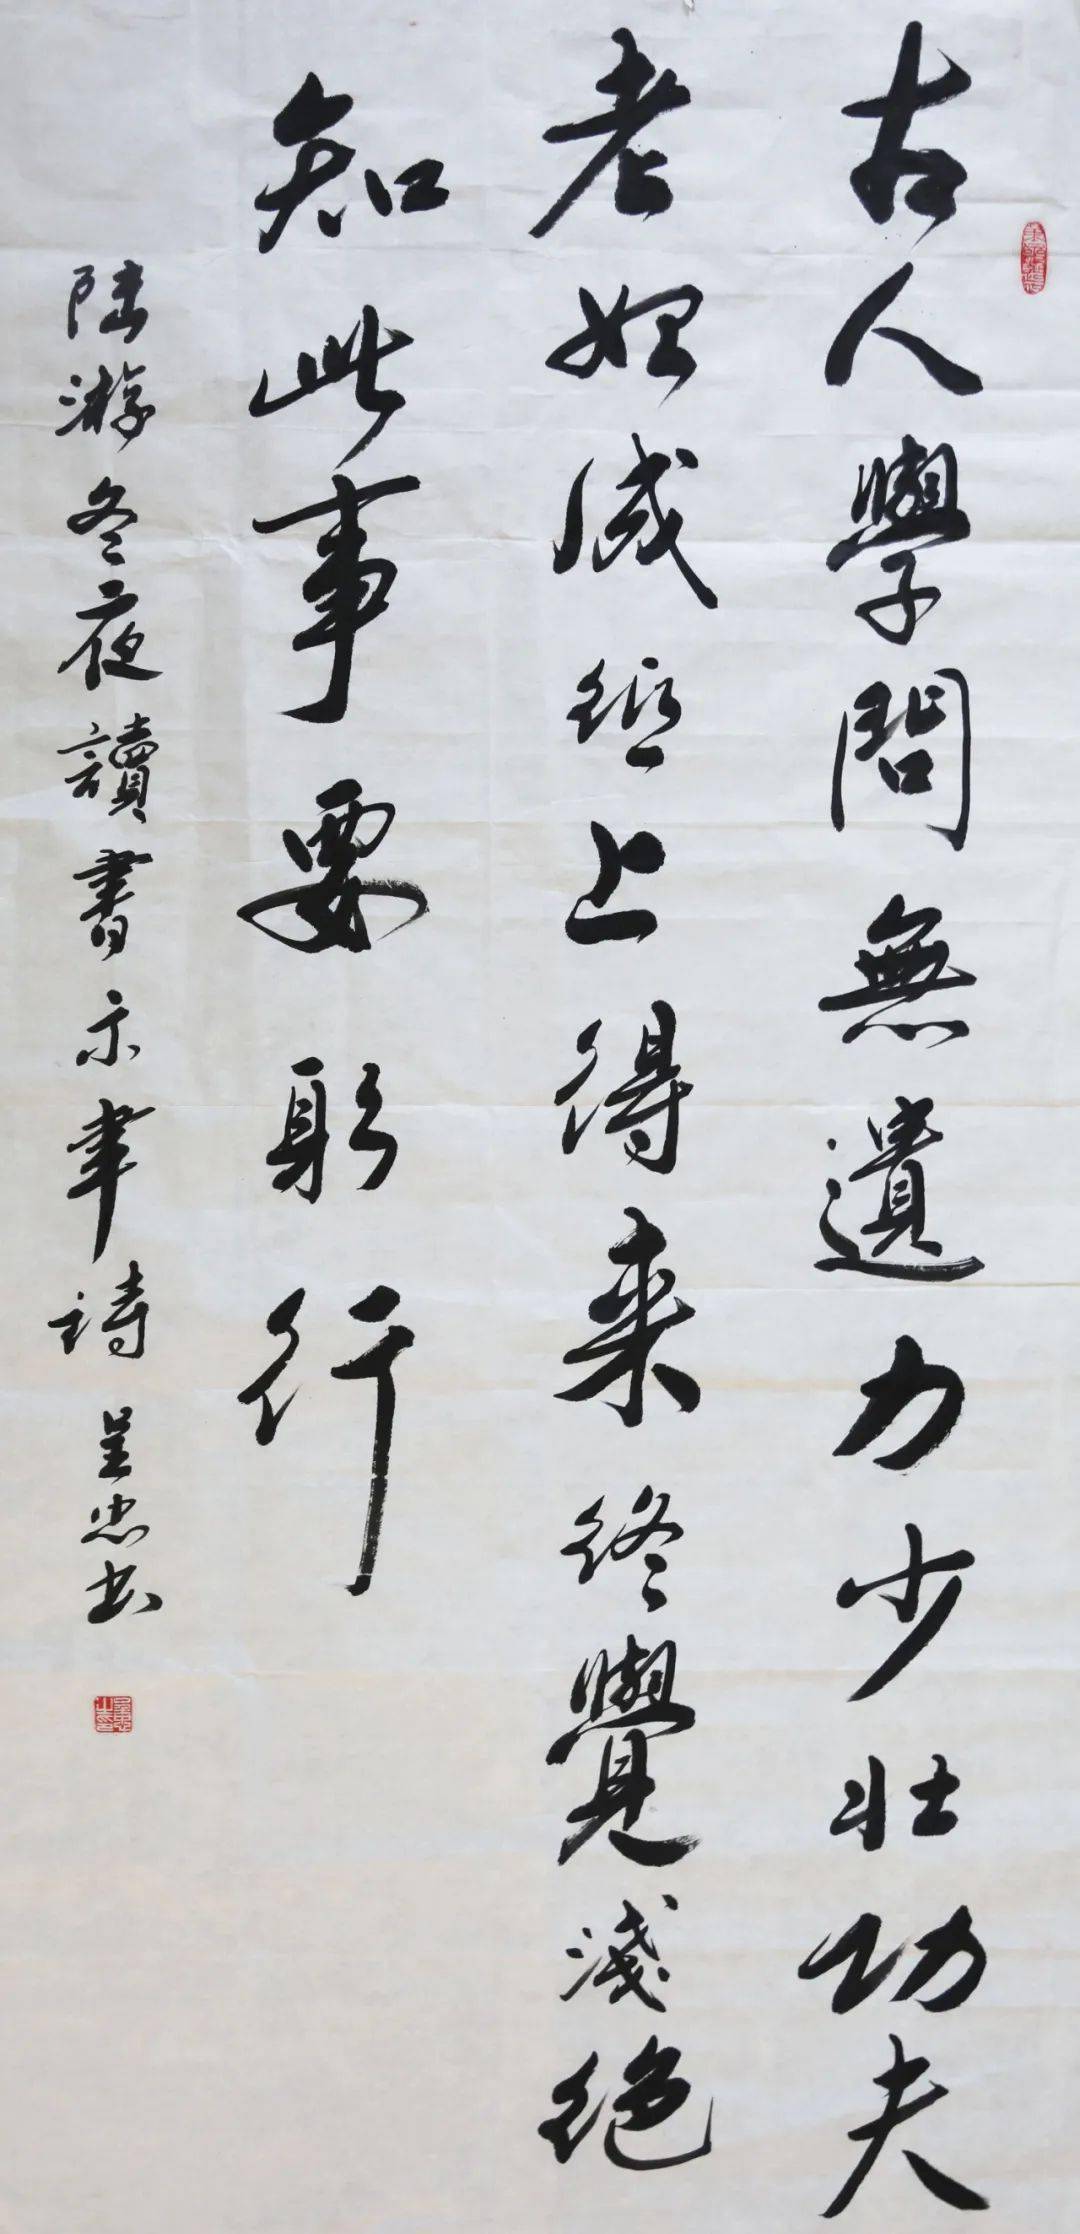 古人學問無遺力少壯功夫
老始成紙上得来終覺淺絕
知此事要躬行
陸游冬夜讀書示聿詩 忠书